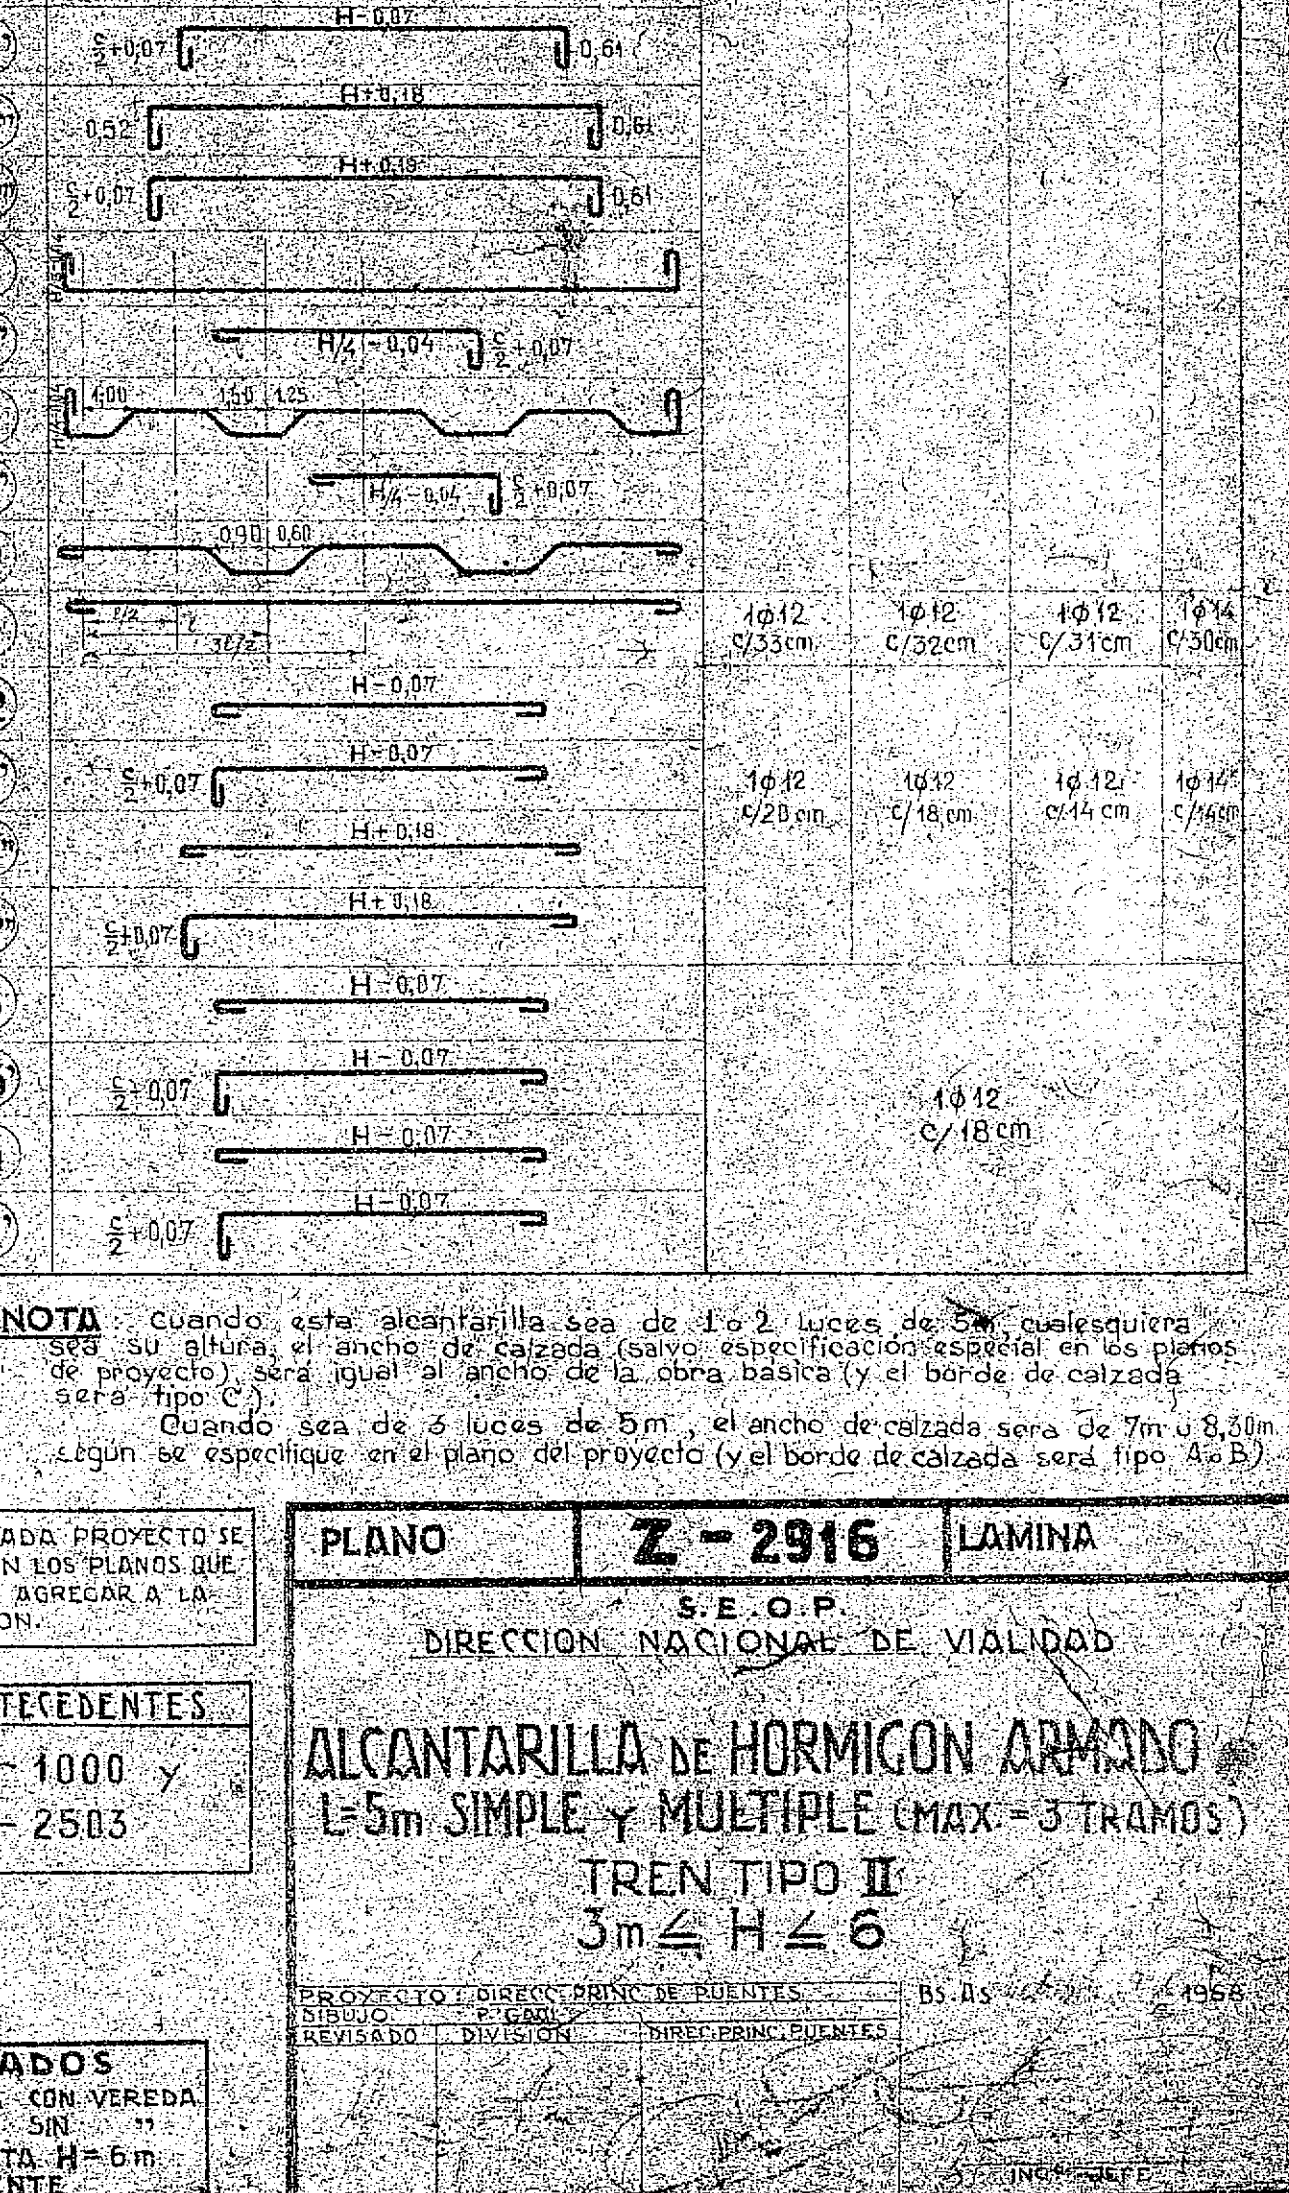 H-0,07
c/2+0,07 0,61
H+0,18
0,52 0,61
H+0,18
c/2+0,07 0,61
H/4-0,04 c/2+0,07
1,00 1,50 1,25
H/4-0,04 c/2+0,07
0,90 0,60
ℓ/2 ℓ
3ℓ/2
1ϕ12 1ϕ12 1ϕ12 1ϕ14
c/33cm c/32cm c/31cm c/30cm
H-0,07
H-0,07
c/2+0,07
1ϕ12 1ϕ12 1ϕ12 1ϕ14
c/20cm c/18cm c/14cm c/14cm
H+0,18
H+0,18
c/2+0,07
H-0,07
H-0,07
c/2+0,07
1ϕ12
c/18cm
H-0,07
H-0,07
c/2+0,07
NOTA: Cuando esta alcantarilla sea de 1 o 2 luces de 5m, cualesquiera
sea su altura, el ancho de calzada (salvo especificación especial en los planos
de proyecto), será igual al ancho de la obra básica (y el borde de calzada
será tipo C).
Cuando sea de 3 luces de 5m, el ancho de calzada sera de 7m u 8,30m
segun se especifique en el plano del proyecto (y el borde de calzada será tipo A o B)
ADA PROYECTO SE
N LOS PLANOS QUE
AGREGAR A LA
ON.
PLANO Z-2916 LAMINA
S.E.O.P.
DIRECCION NACIONAL DE VIALIDAD
TECEDENTES
- 1000 y
- 2503
ALCANTARILLA DE HORMIGON ARMADO
L=5m SIMPLE Y MULTIPLE (MAX.=3 TRAMOS)
TREN TIPO II
3m ≤ H ≤ 6
PROYECTO: DIRECC. PRINC. DE PUENTES BS.AS 1968
DIBUJO
REVISADO DIVISION DIREC. PRINC. PUENTES
ADOS
CON VEREDA
SIN "
TA H=6m
NTE
INGº JEFE